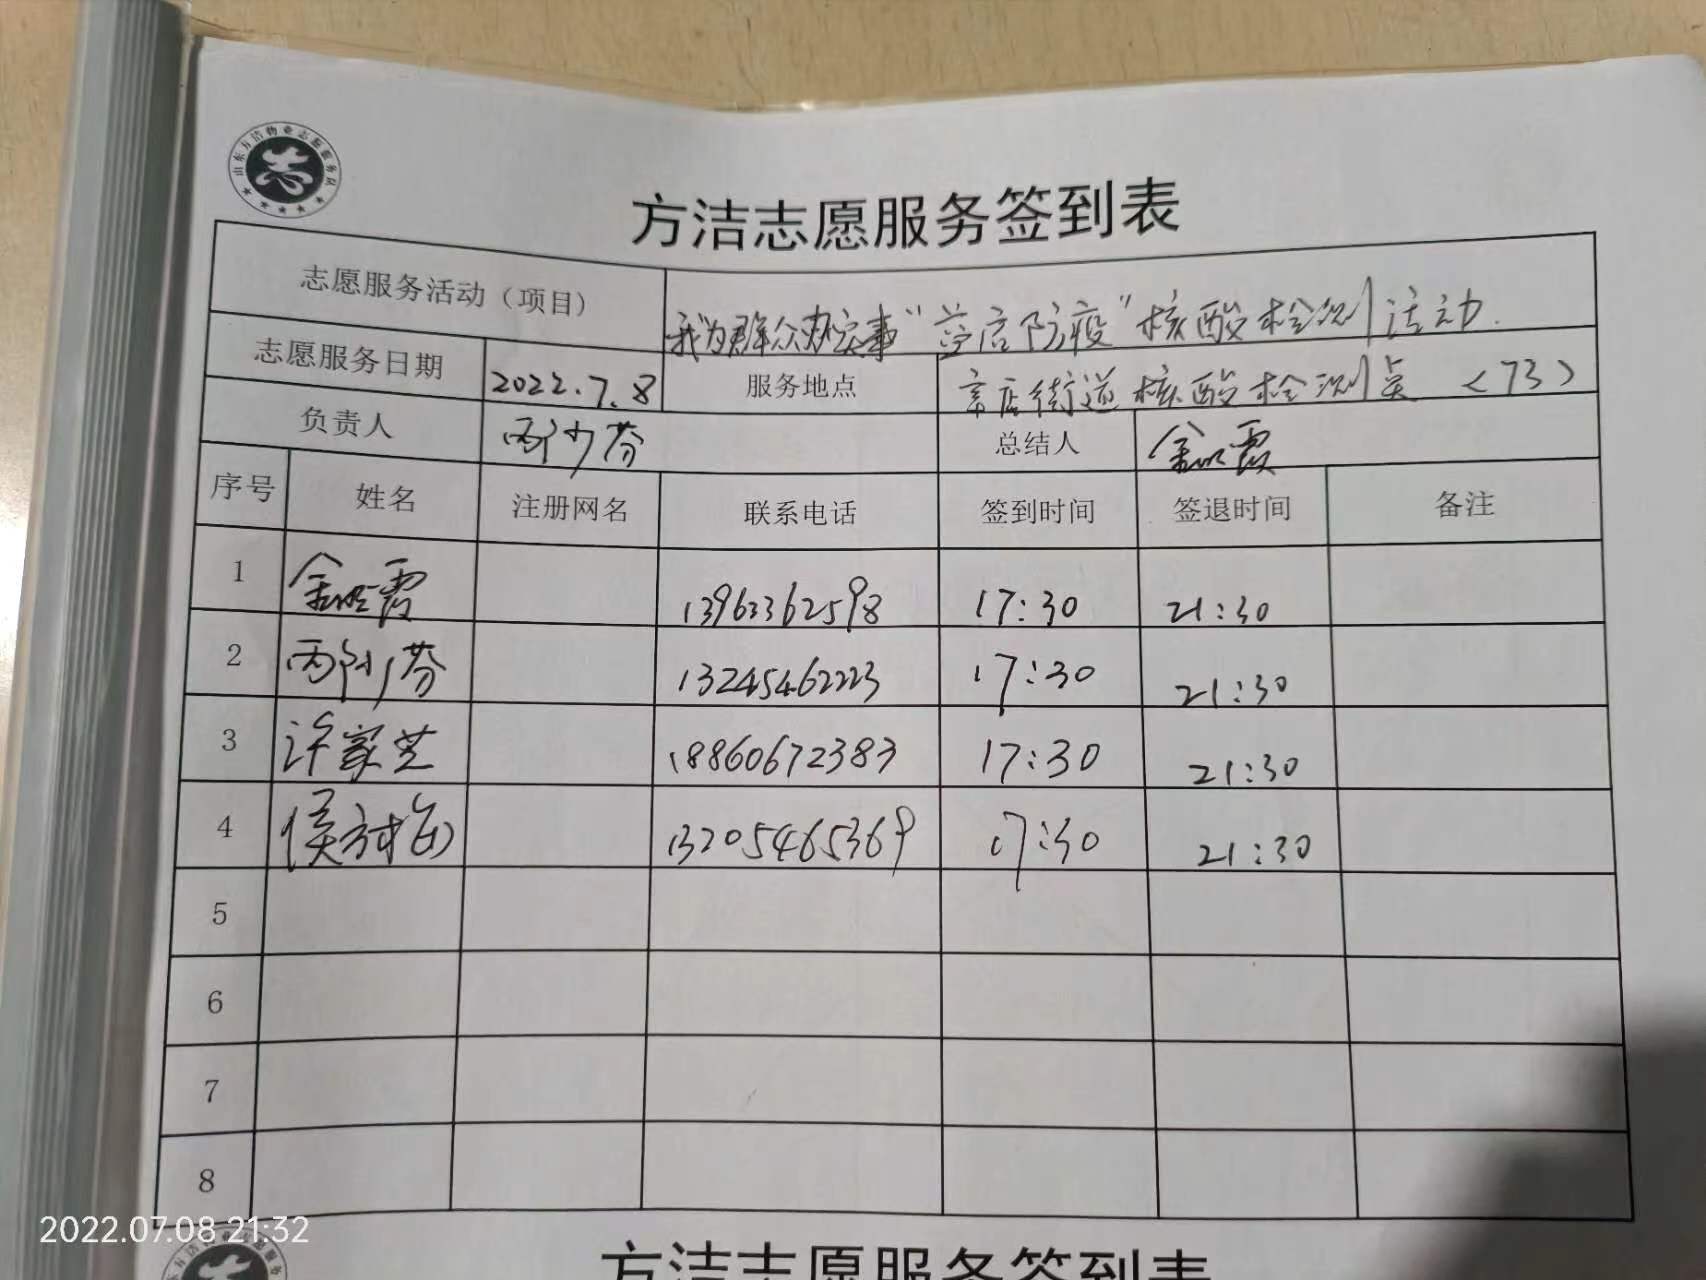 山东方洁物业志愿服务队
方洁志愿服务签到表
志愿服务活动（项目） 我为群众办实事“辛店防疫”核酸检测活动.
志愿服务日期 2022.7.8 服务地点 辛店街道核酸检测点 <73>
负责人 总结人
序号 姓名 注册网名 联系电话 签到时间 签退时间 备注
1 13963362598 17:30 21:30
2 13245462223 17:30 21:30
3 许家芝 18860672383 17:30 21:30
4 13205465369 17:30 21:30
5
6
7
8
2022.07.08 21:32
方洁志愿服务签到表